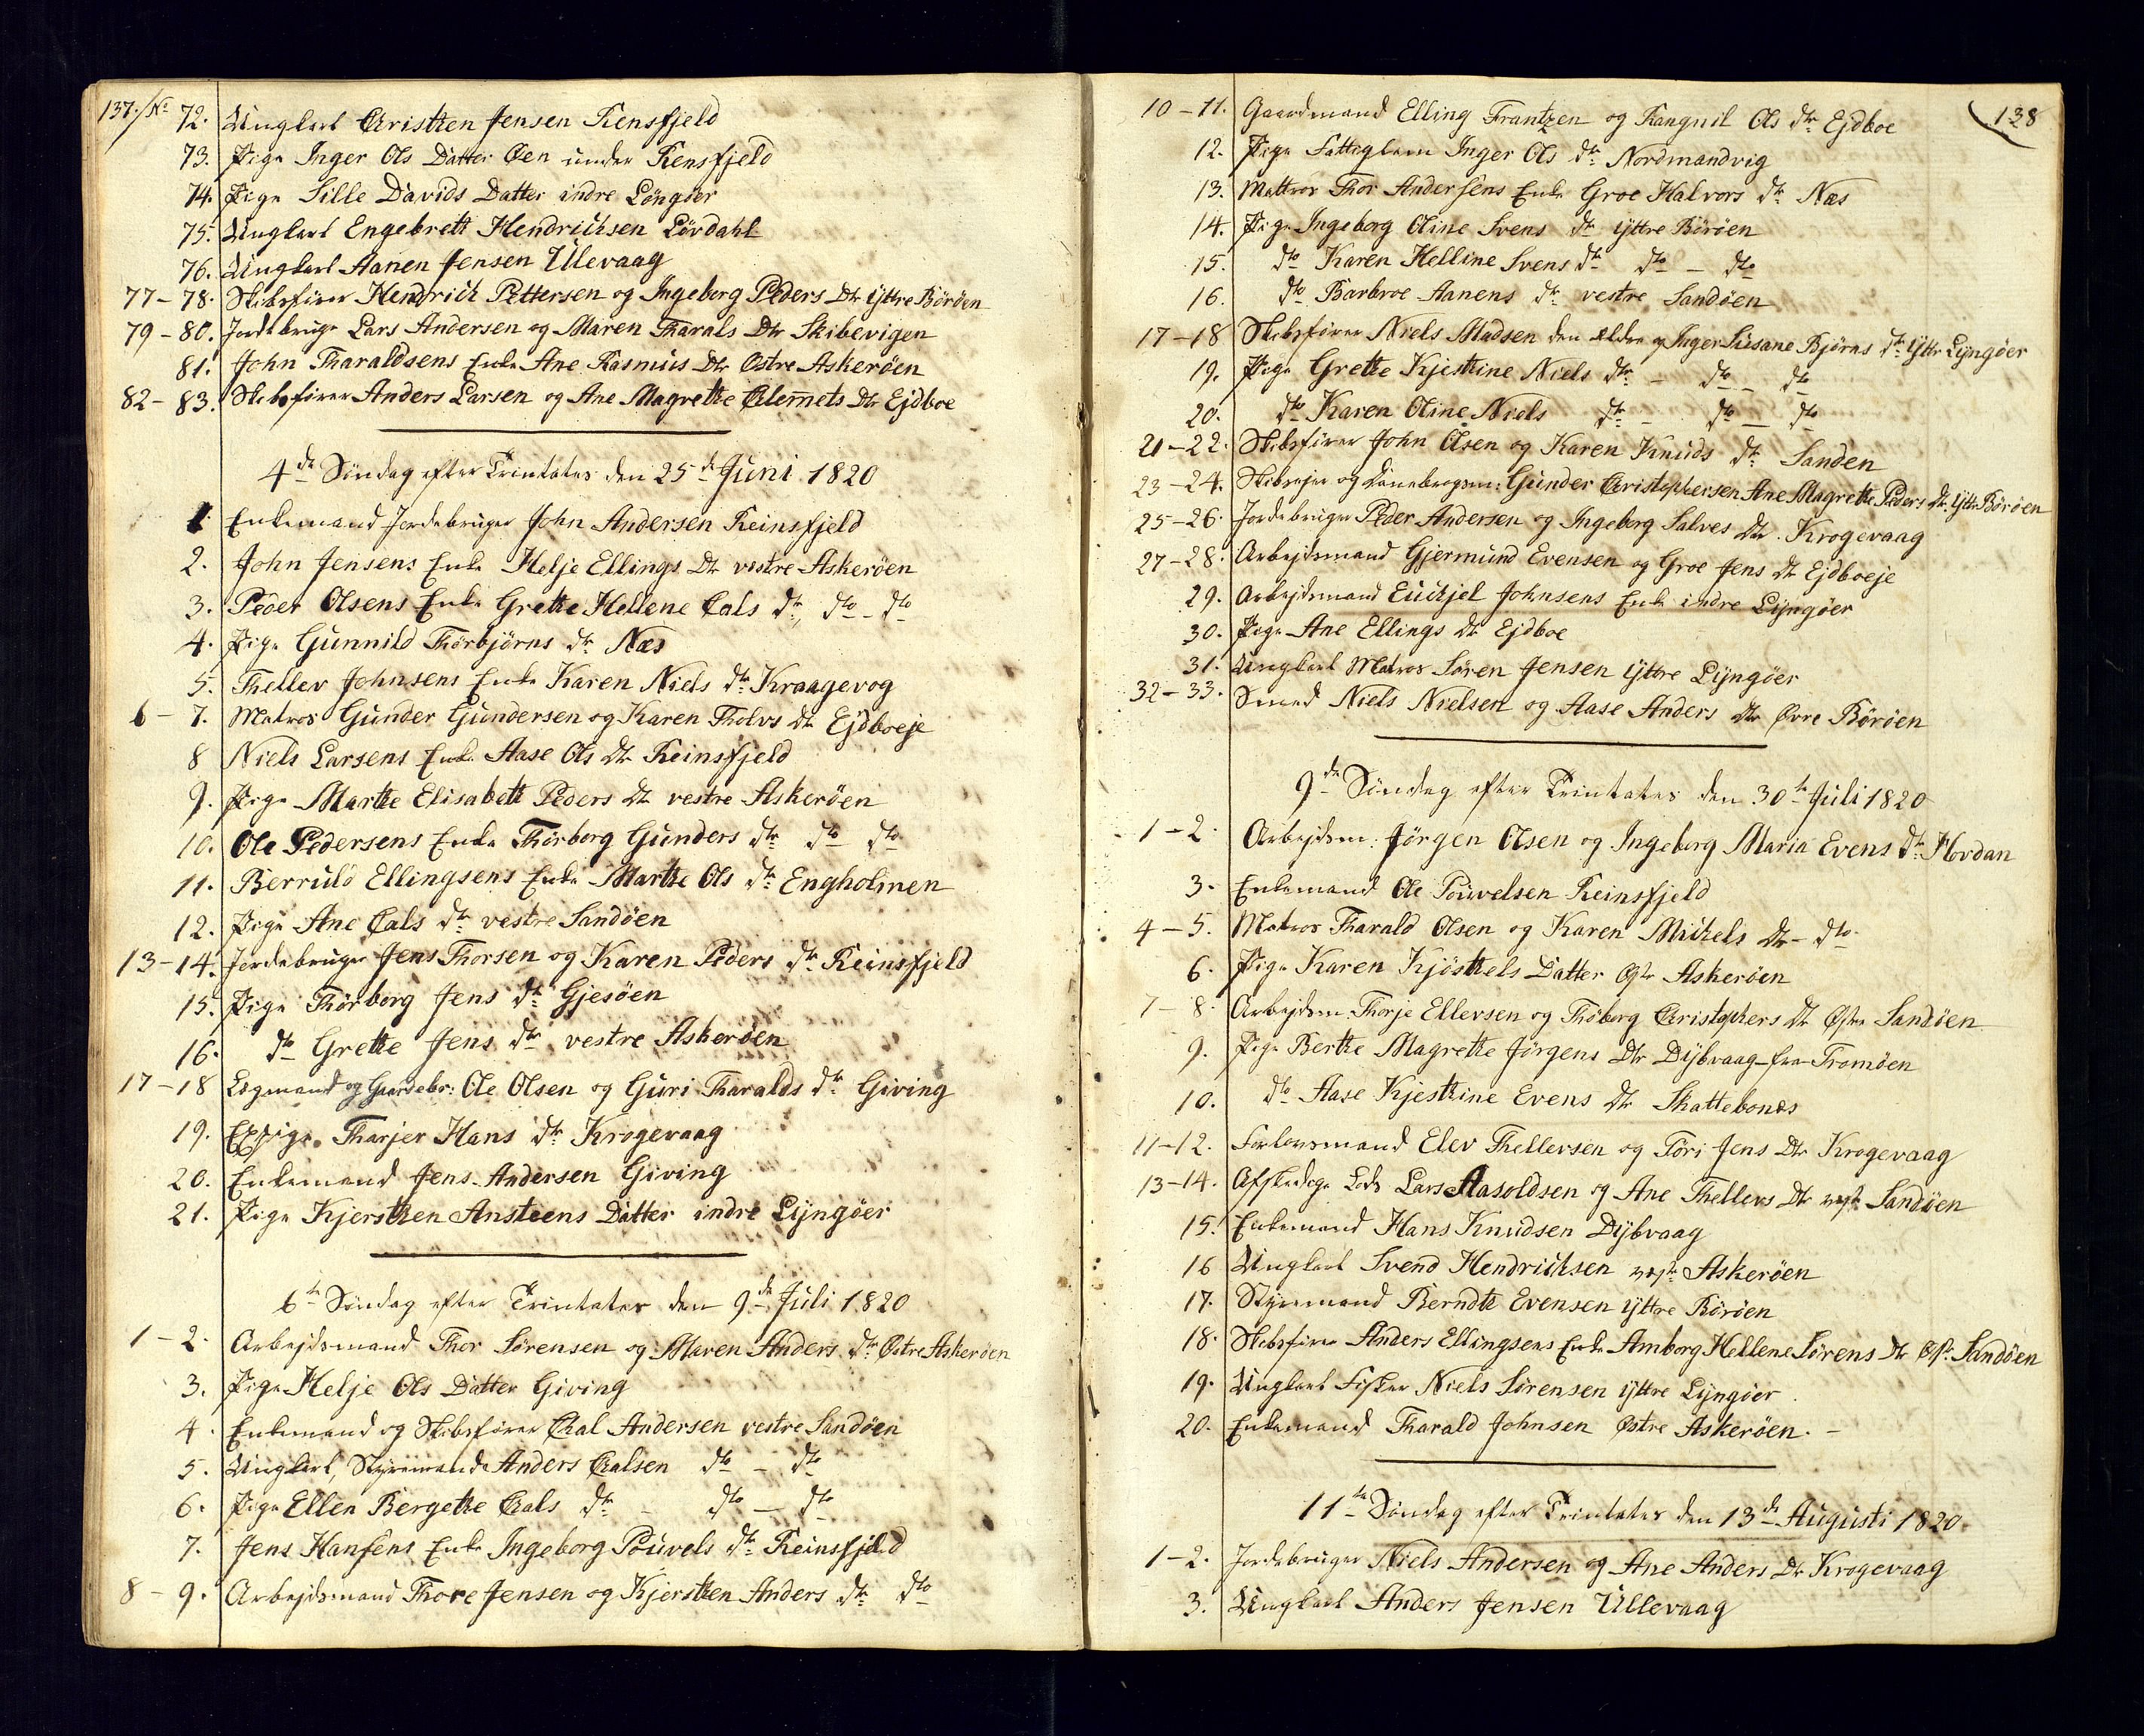 137./No 72. Ungkarl Christen Jensen Rensfjeld
73. Pige Inger Ols Datter Øen under Rensfjeld
74. Pige Sille Davids Datter indre Löngöer
75. Ungkarl Engebrett Hendrichsen Lövdahl
76. Ungkarl Aanen Jensen Ulevaag
77 - 78. Skibsfører Hendrich Pettersen og Ingeborg Peders Dtr ÿttre Böröen
79 - 80. Jordebruge Lars Andersen og Maren Tharals Dtr Skibevigen
81. John Tharaldsens Enke Ane Rasmus Dtr Østre Askeröen
82 - 83. Skibsfører Anders Larsen og Ane Magrethe Clemets Dtr Ejdboe
4de Söndag efter Trintates den 25de Juni 1820
1. Enkemand Jordebruger John Andersen Reinsfjeld
2. John Jensens Enke Helje Ellings Dtr vestre Askeröen
3. Peder Olsens Enke Grethe Hellene Cals dtr, dto - dto
4. Pige Gunnild Thorbjörns dtr Næs
5. Thellev Johnsens Enke Karen Niels dtr Kraagevog
6 - 7. Matros Gunder Gundersen og Karen Tholvs dtr Ejdboeje
8 Niels Larsens Enke Aase Ols dtr Reinsfjeld
9. Pige Marthe Elisabeth Peders dtr vestre Askeröen
10. Ole Pedersens Enke Thorborg Gunders dtr dto dto
11. Berrulö Ellingsens Enke Marthe Ols dtr Engholmen
12. Pige Ane Cals dtr vestre Sandöen
13 - 14. Jordebruger Jens Thorsen og Karen Peders dtr Reinsfjeld
15. Pige Thörborg Jens dtr Gjesöen
16. dto Grethe Jens dtr vestre Askeröen
17 - 18 Lægmand og Gaardebr: Ole Olsen og Guri Tharalds dtr Giving
19. Pige Tharjer Hans dtr Krogevaag
20. Enkemand Jens Andersen Giving
21. Pige Kjersthen Ansteens Datter indre Lÿngöer
6te Söndag efter Trintates den 9de Juli 1820
1 - 2. Arbejdsmand Thor Sörensen og Maren Anders dtr Østre Askeröen
3. Pige Helje Ols Datter Giving
4. Enkemand og Skibsfører Chal Andersen vestre Sandöen
5. Ungkarl, Styremand Anders Chalsen dto - dto
6. Pige Ellen Bergethe Chals dtr - dto - dto
7. Jens Hansens Enke Ingeborg Pouvels dtr Reinsfjeld
8 - 9. Arbejdsmand Thore Jensen og Kjersthen Anders dtr dto
138
10 - 11. Gaardmand Elling Frantzen og Ranguil Ols dtr Ejdboe
12. Pige Fattiglem Inger Ols dtr Nordmandvig
13. Mattros Thor Andersens Enke Groe Halvors dtr Næs
14. Pige Ingeborg Oline Svens dtr ÿttre Böröen
15. dto Karen Helline Svens dtr dto - dto
16. dto Barbroe Aanens dtr vestre Sandöen
17 - 18 Skibsfører Niels Madsen den ældre og Inger Susane Björns dtr ÿttr Lÿngöer
19. Pige Grethe Kjisthine Niels dtr - dto - dto
20. dto Karen Oline Niels dtr - dto - dto
21 - 22. Skibsfører John Olsen og Karen Knuds dtr Sanden
23 - 24. Skibsejer og Danebrogsm: Gunder Christophersen Ane Magrethe Peders dtr ÿttr Böröen
25 - 26. Jordebruger Peder Andersen og Ingeborg Salves dtr Krogevaag
27 - 28. Arbejdsmand Gjermund Evensen og Groe Jens dtr Ejdboeje
29. Arbejdsmand Euchjel Johnsens Enke indre Lÿngöer
30. Pige Ane Ellings dtr Ejdboe
31. Ungkarl Matros Sören Jensen ÿttre Lÿngöer
32 - 33. Smed Niels Nielsen og Aase Anders dtr Øvre Böröen
9de Söndag efter Trintates den 30te Juli 1820
1 - 2. Arbejdsm: Jörgen Olsen og Ingeborg Maria Evens dtr Hovdan
3. Enkemand Ole Pouvelsen Reinsfjeld
4 - 5. Matros Tharald Olsen og Karen Michels Dtr - dto
6. Pige Karen Kjösthels Datter Østr Askeröen
7 - 8. Arbejdsm. Thorje Ellevsen og Thöborg Christophers Dtr Østre Sandöen
9. Pige Berthe Magrethe Jörgens Dtr Dÿbvaag fra Tromöen
10. dto Aase Kjesthine Evens Dtr Skattebones
11 - 12. Forlovsmand Elev Thellevsen og Töri Jens Dtr Krogevaag
13 - 14. Afskediget Lods Lars Aasoldsen og Ane Thellevs Dtr vestr Sandöen
15. Enkemand Hans Knudsen Dÿbvaag
16 Ungkarl Svend Hendrichsen vestr Askeröen
17. Styremand Berndth Evensen ÿttre Böröen
18. Skibsfører Anders Ellingsens Enke Amborg Hellene Sörens Dtr Østr Sandöen
19. Ungkarl Fisker Niels Sörensen ÿttre Lÿngöer
20. Enkemand Tharald Johnsen Østre Askeröen. -
11te Söndag efter Trintates den 13de Augusti 1820.
1 - 2. Jordebruger Niels Andersen og Ane Anders Dtr Krogevaag
3. Ungkarl Anders Jensen Ullevaag